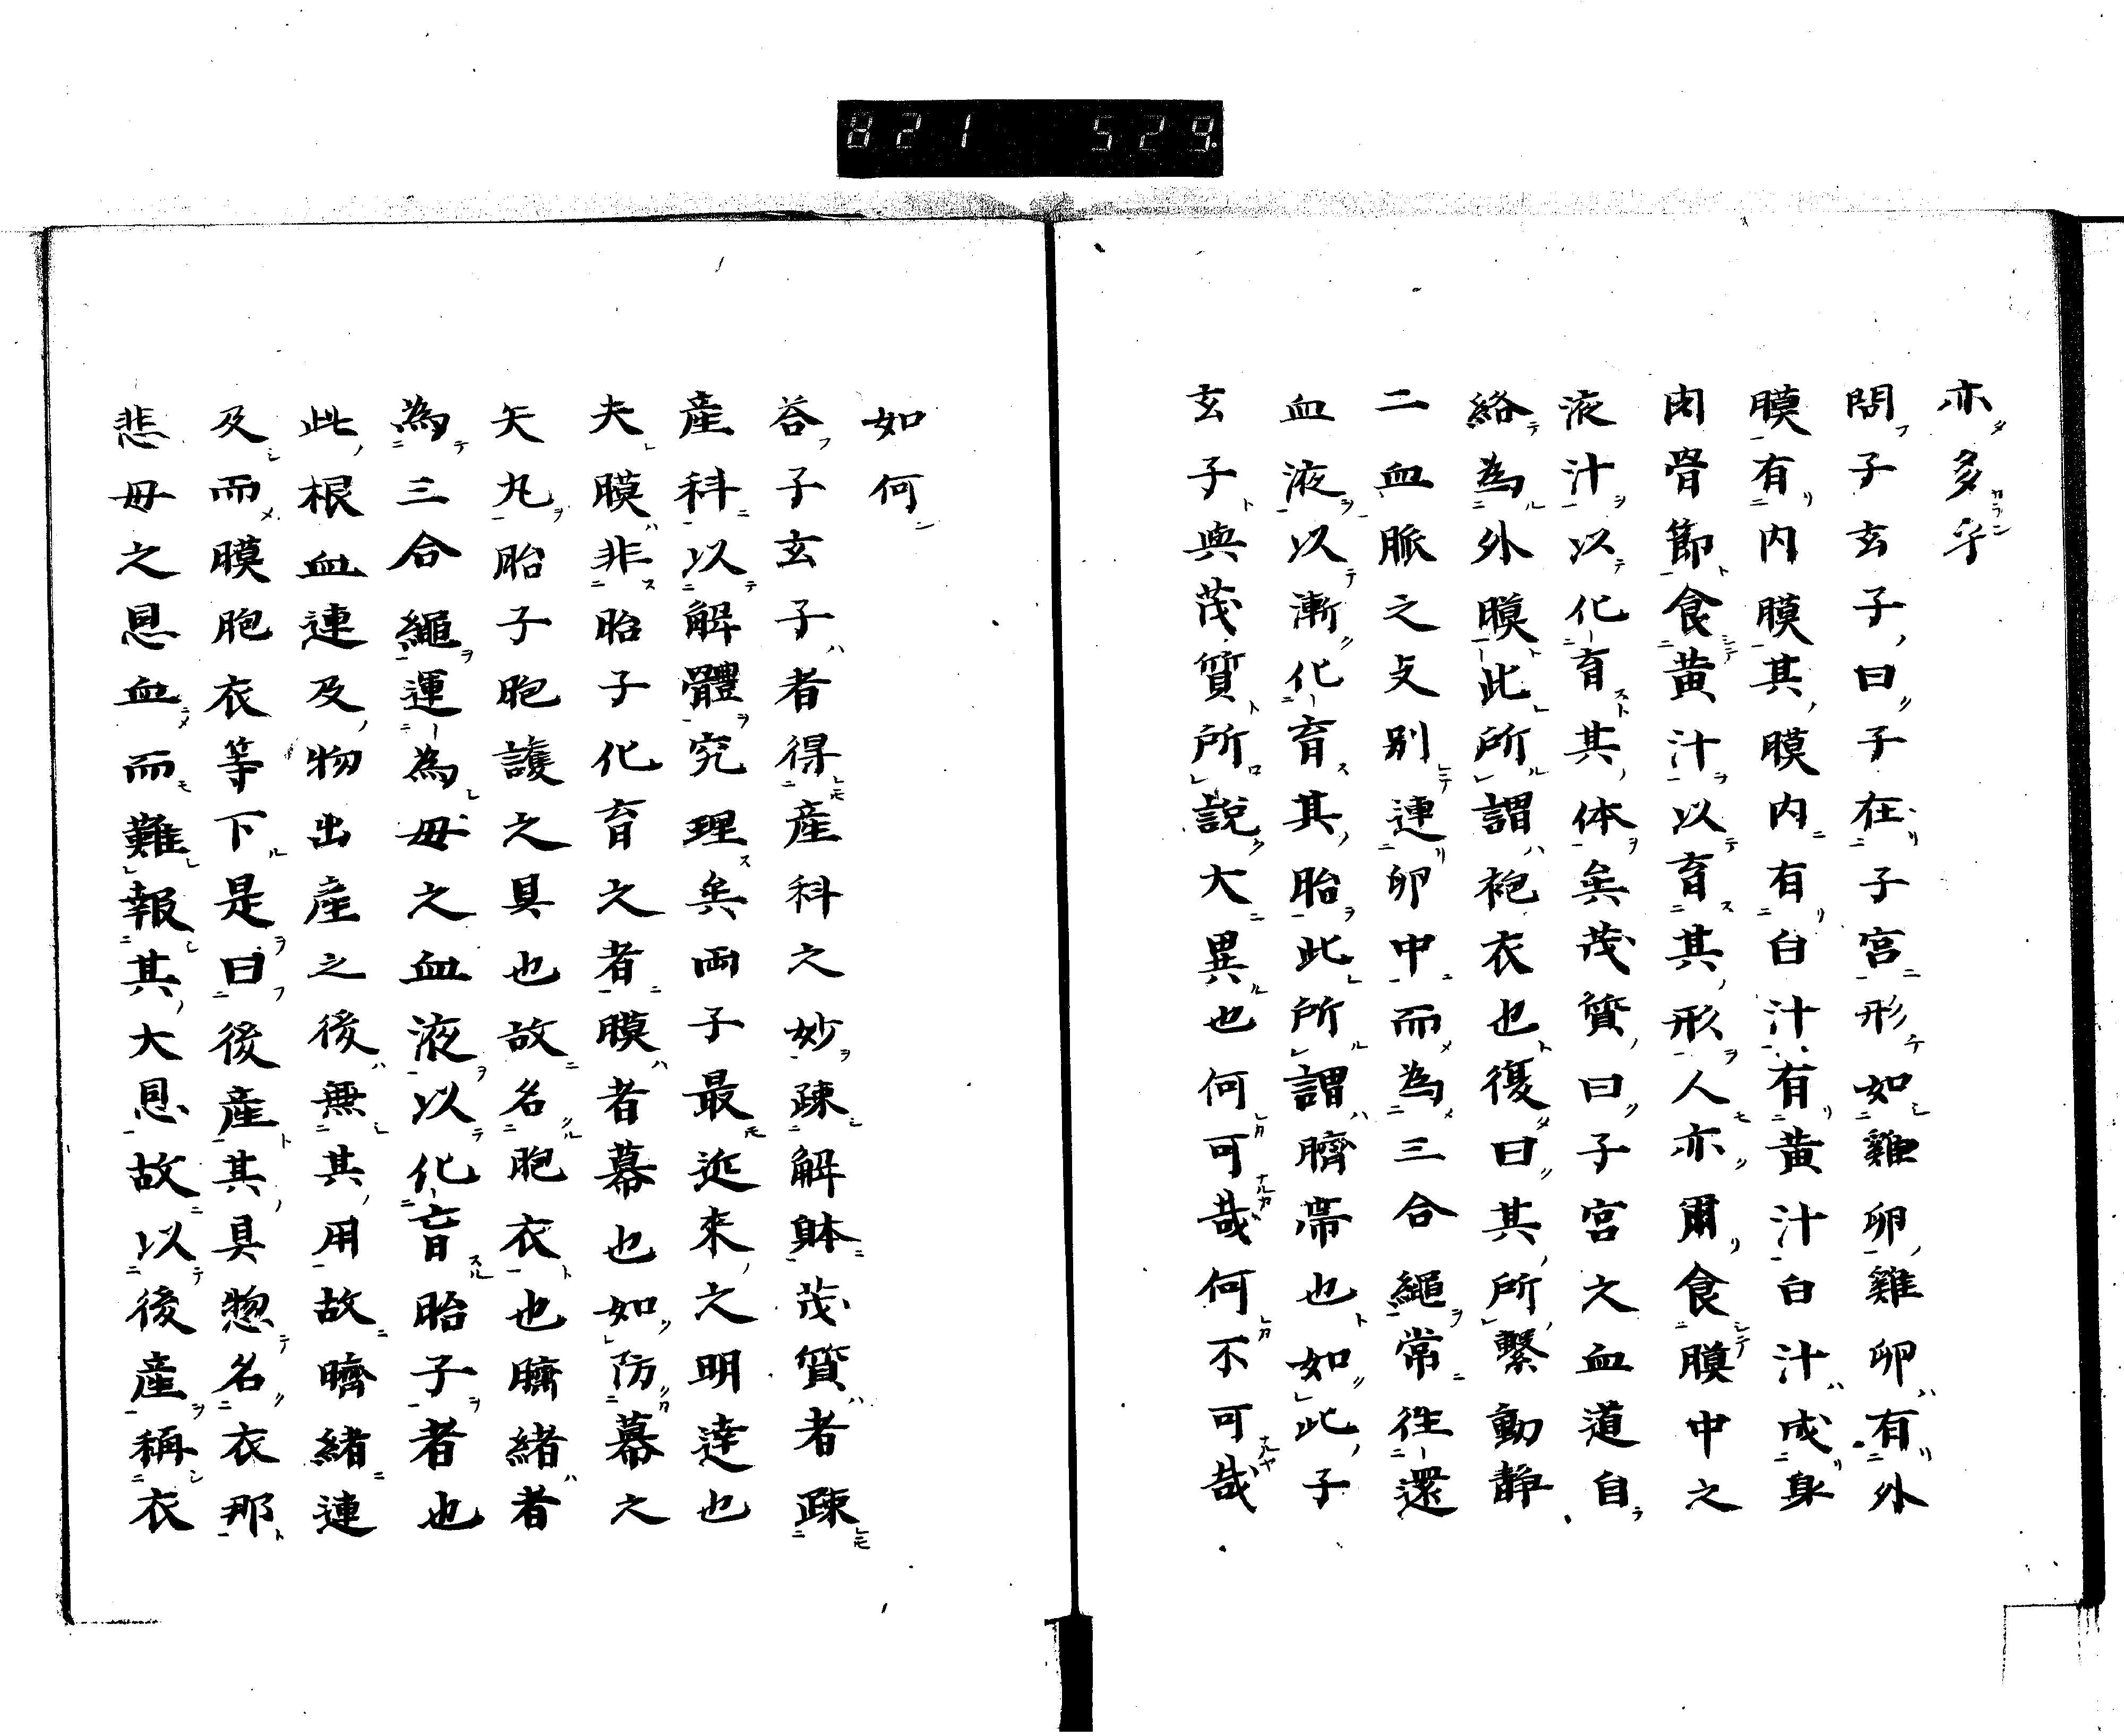 821 529
亦多乎
問子玄子曰子在子宮形如雞卵雞卵有外
膜有内膜其膜内有白汁有黄汁白汁成身
肉骨節食黄汁以育其形人亦爾食膜中之
液汁以化育其体矣茂質曰子宮之血道自
絡為外膜此所謂袍衣也復曰其所繋動静
二血脈之支別連卵中而為三合繩常往還
血液以漸化育其胎此所謂臍帯也如此子
玄子與茂質所説大異也何可哉何不可哉
如何
荅子玄子者得産科之妙疎解躰茂質者疎
産科以解體究理矣両子最近来之明達也
夫膜非胎子化育之者膜者幕也如防幕之
矢丸胎子胞護之具也故名胞衣也臍緒者
為三合繩運為母之血液以化育胎子者也
此根血連及物出産之後無其用故臍緒連
及而膜胞衣等下是曰後産其具惣名衣那
悲母之恩血而難報其大恩故以後産稱衣